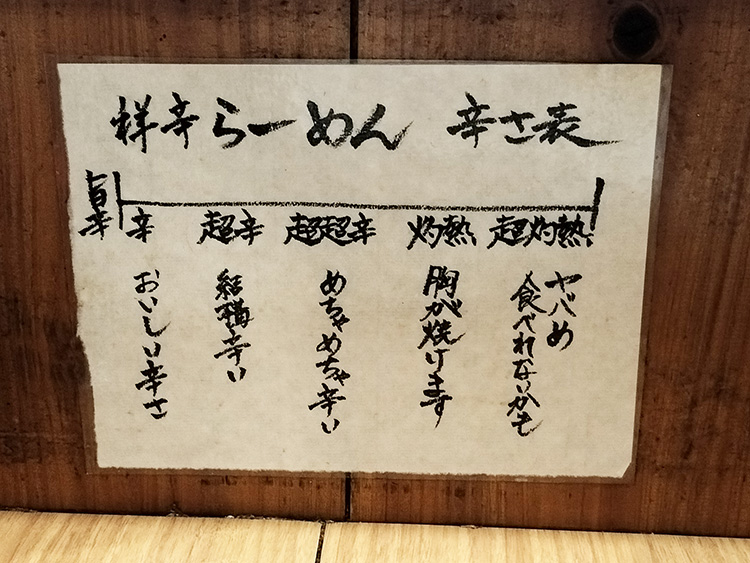 祥辛らーめん 辛さ表
旨辛
辛 超辛 超超辛 灼熱 超灼熱
おいしい辛さ
結構辛い
めちゃめちゃ辛い
胸が焼けます
ヤバめ
食べれないかも